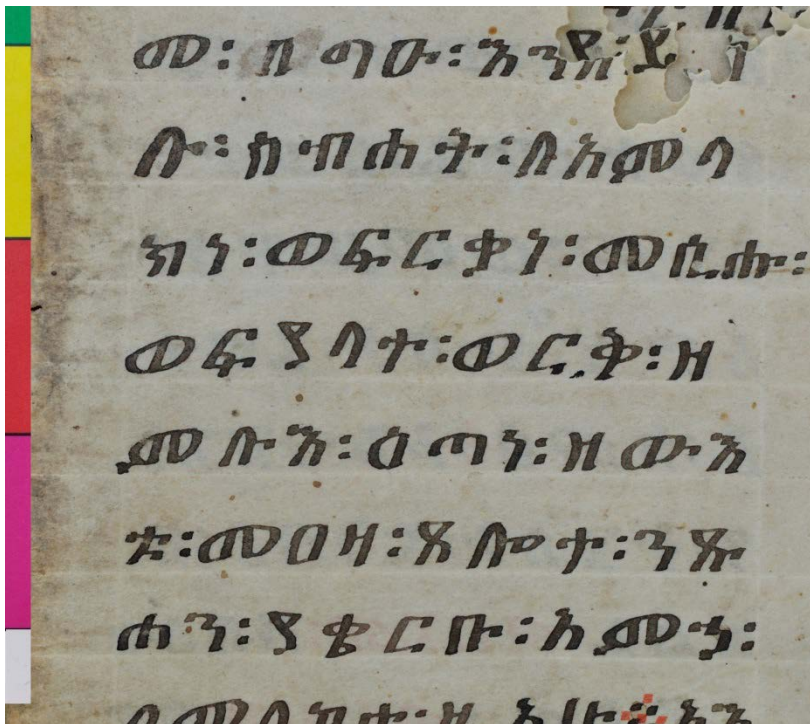 ሙ፡ በ ጣዑ፡ እንዘ፡ ይ
ሉ፡ ስብሐት፡ ለአምላ
ክነ፡ ወፍርቃነ፡ መሲሑ፡
ወፍያላተ፡ ወርቅ፡ ዘ
ምሉእ፡ ዕጣነ፡ ዘውእ
ቱ፡ መዐዛ፡ ጸሎተ፡ ንጹ
ሐን፡ ያቄርቡ፡ አምኃ፡